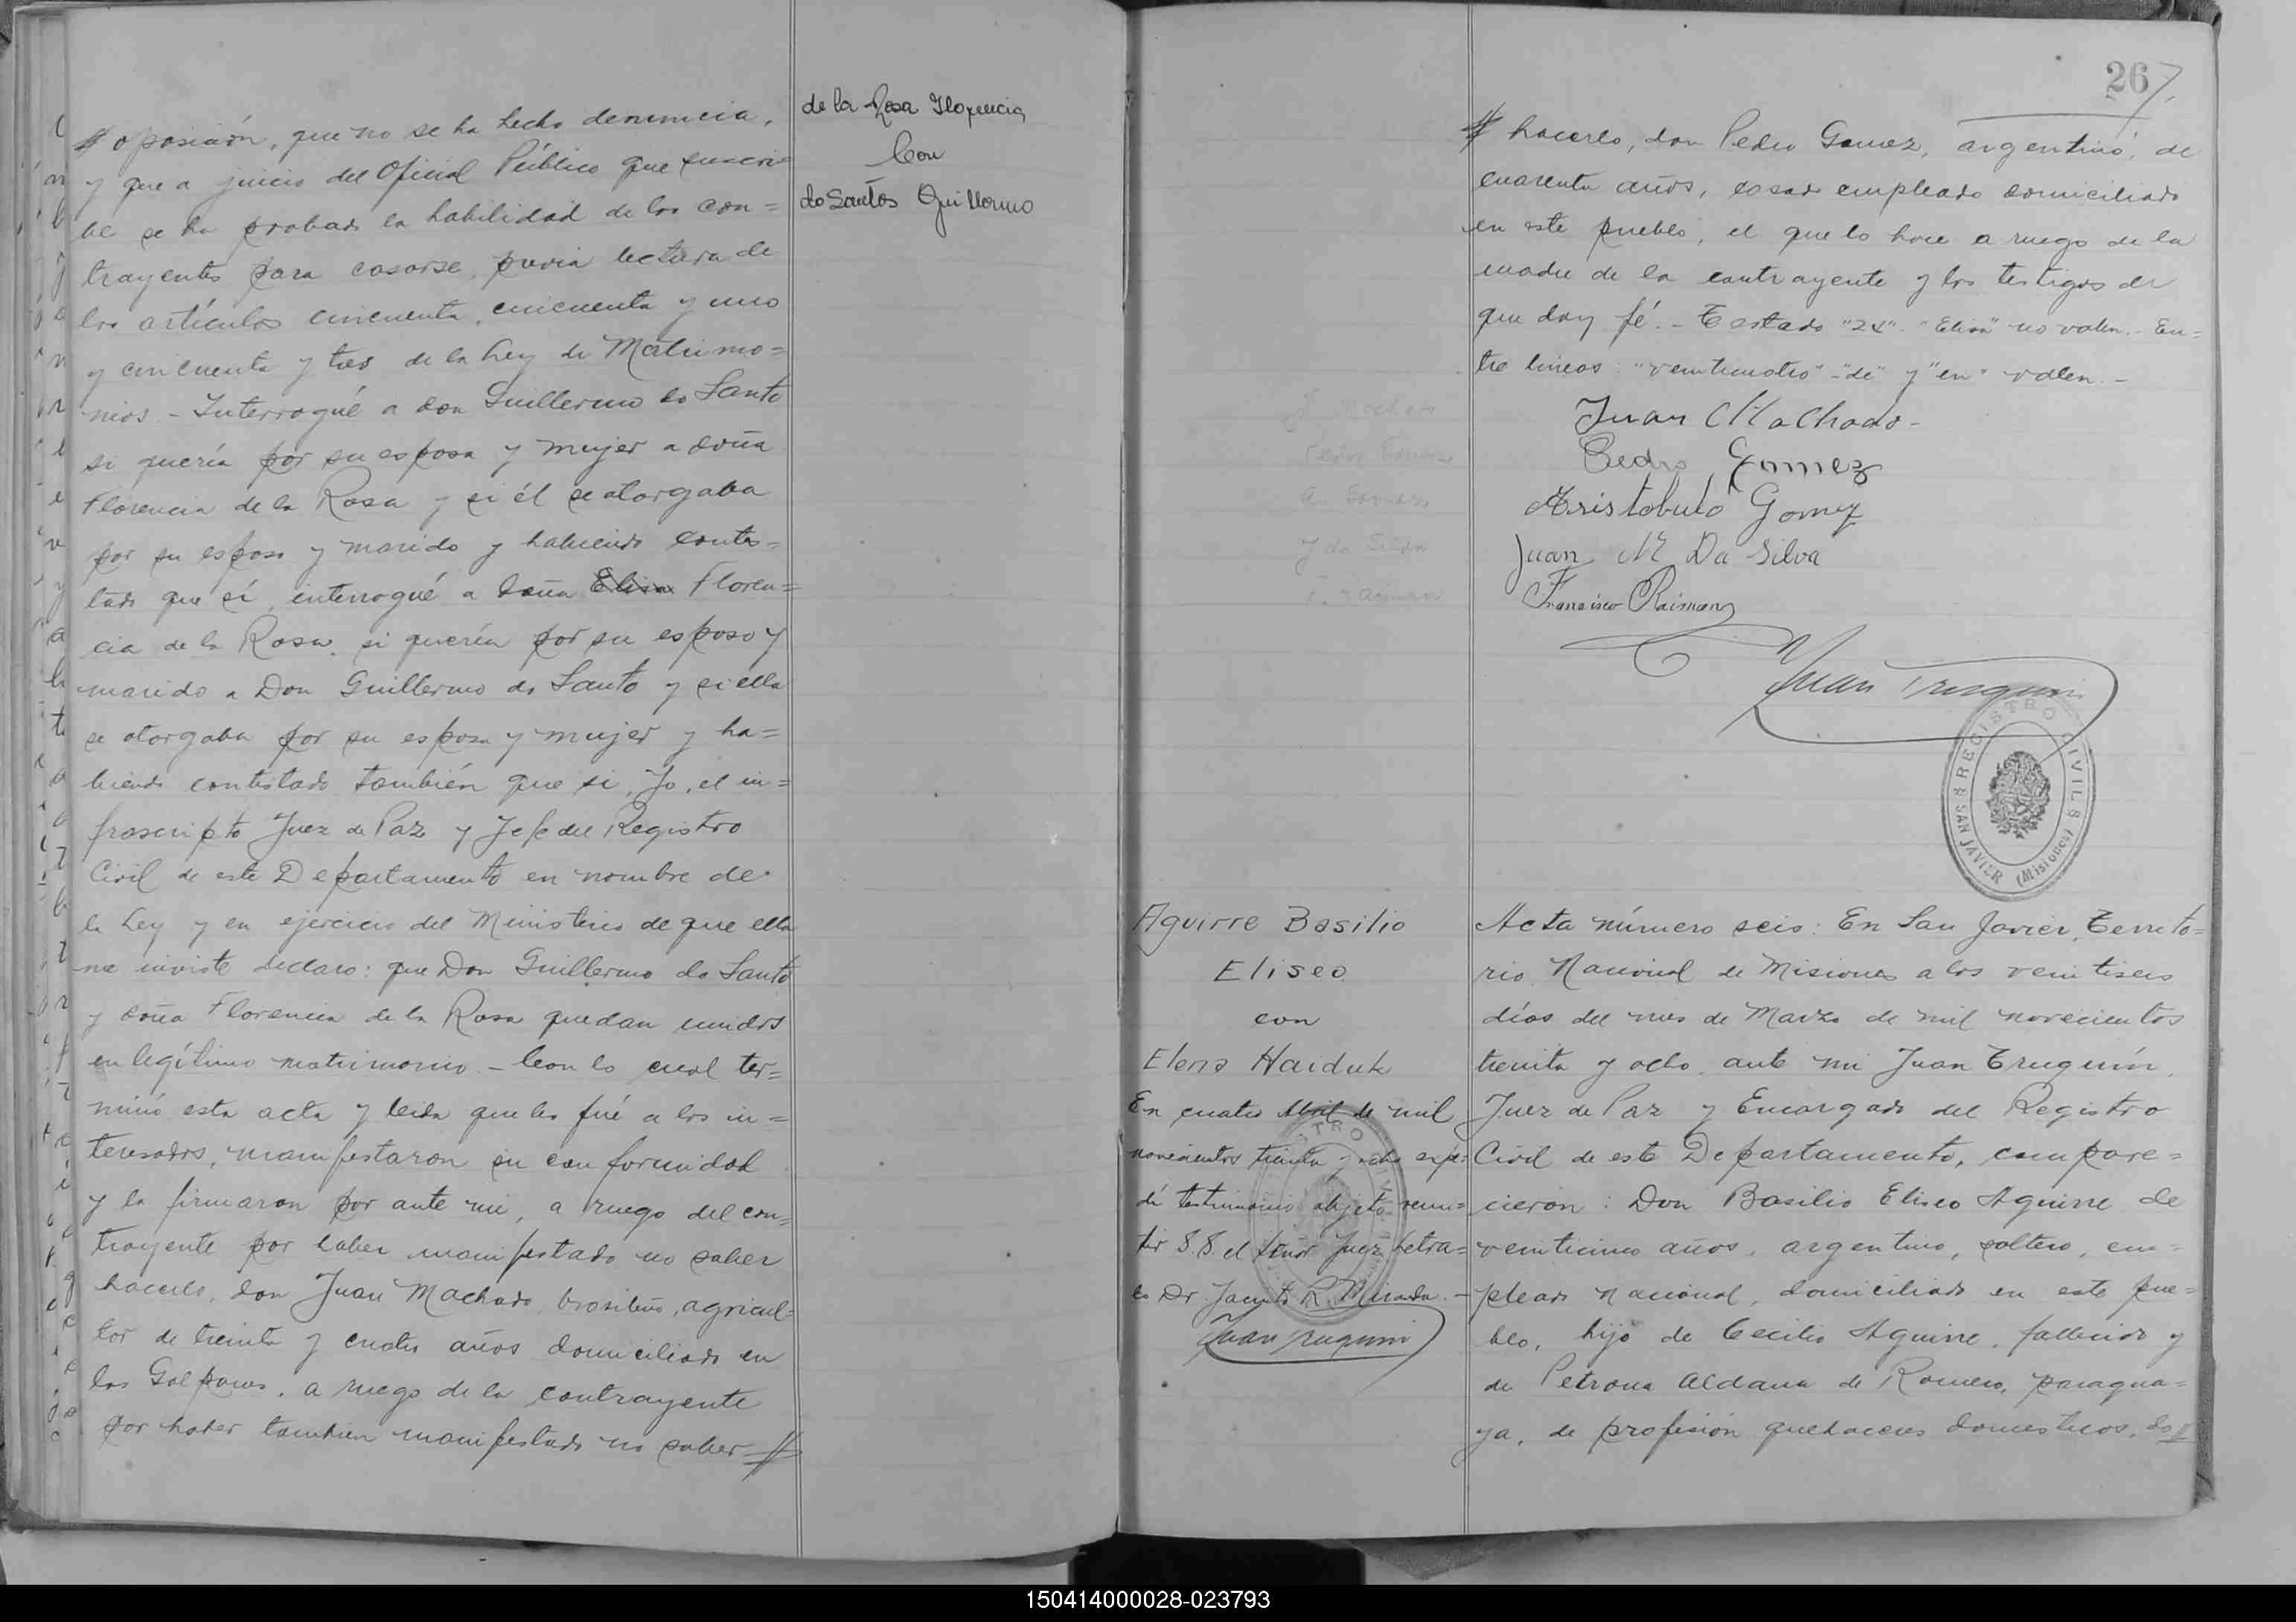 # oposición, que no se ha hecho denuncia,
y que a juicio del Oficial Público que suscri=
be se ha probado la habilidad de los con=
trayentes para casarse, previa lectura de
los artículos cincuenta, cincuenta y uno
y cincuenta y tres de la Ley de Matrimo=
nios. - Interrogué a don Guillermo do Santo
si quería por su esposa y mujer a doña
Florencia de la Rosa y si él se otorgaba
por su esposo y marido y habiendo contes=
tado que sí, interrogué a doña Elisa Floren=
cia de la Rosa, si quería por su esposo y
marido a Don Guillermo do Santo y si ella
se otorgaba por su esposa y mujer y ha=
biendo contestado también que si, Yo, el in=
frascripto Juez de Paz y Jefe del Registro
Civil de este Departamento en nombre de
la Ley y en ejercicio del Ministerio de que ella
me inviste declaro: que Don Guillermo do Santo
y doña Florencia de la Rosa quedan unidos
en legítimo matrimonio. - Con lo cual ter=
minó esta acta y leida que les fué a los in=
teresados, manifestaron su conformidad
y la firmaron por ante mi, a ruego del con=
trayente por haber manifestado no saber
hacerlo, don Juan Machado, brasileño, agricul=
tor de treinta y cuatro años domiciliado en
los Galpones, a ruego de la contrayente
por haber tambien manifestado no saber #
de la Rosa Florencia
Con
do Santos Guillermo
267
# hacerlo, don Pedro Gomez, argentino, de
cuarenta años, casado empleado domiciliado
en este pueblo, el que lo hace a ruego de la
madre de la contrayente y los testigos de
que doy fé. - Testado "24" - "Elisa" no valen. - En=
tre lineas: "veinticuatro" - "de" y "en" valen. -
Juan Machado -
Pedro Gomez
Aristobulo Gomez
Juan M Da Silva
Francisco Raiman
Juan Truquin
REGISTRO CIVIL
SAN JAVIER (Misiones)
Aguirre Basilio
Eliseo
con
Elena Haiduk
En cuatro Abril de mil
novecientos treinta y ocho expe=
dí testimonio objeto remi=
tir S.S. el Señor Juez Letra=
do Dr. Jacinto R. Miranda. -
Juan Truquin
Acta número seis: En San Javier, Territo=
rio Nacional de Misiones a los veintiseis
días del mes de Marzo de mil novecientos
treinta y ocho, ante mi Juan Truquin,
Juez de Paz y Encargado del Registro
Civil de este Departamento, compare=
cieron: Don Basilio Eliseo Aguirre de
veinticinco años, argentino, soltero, em=
pleado Nacional, domiciliado en este pue=
blo, hijo de Cecilio Aguirre, fallecido y
de Petrona Aldana de Romero, paragua=
ya, de profesión quehaceres domesticos, do#
150414000028-023793